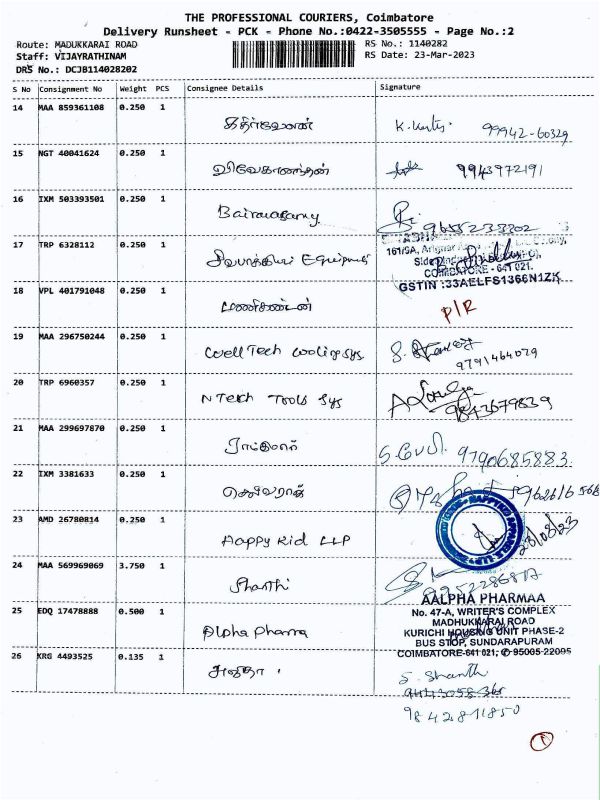 THE PROFESSIONAL COURIERS, Coimbatore
Delivery Runsheet - PCK - Phone No.:0422-3505555 - Page No.:2
Route: MADUKKARAI ROAD RS No.: 1140282
Staff: VIJAYRATHINAM RS Date: 23-Mar-2023
DRS No.: DCJB114028202
S No Consignment No Weight PCS Consignee Details Signature
14 MAA 859361108 0.250 1
99942-60329
15 NGT 40041624 0.250 1
விவேகானந்தன் 9943972191
16 IXM 503393501 0.250 1
Bairavasamy 9655238802
17 TRP 6328112 0.250 1
161/9A,
COIMBATORE - 641 021.
GSTIN :33AELFS1366N1ZK
18 VPL 401791048 0.250 1
மணிகண்டன் P/R
19 MAA 296750244 0.250 1
Well Tech Cooling sys S.
9791464079
20 TRP 6960357 0.250 1
N Tech Tools Sys
9843679839
21 MAA 299697870 0.250 1
ராஜ்குமார் 9790685883
22 IXM 3381633 0.250 1
செல்வராஜ்
23 AMD 26780814 0.250 1
Happy Kid LLP
24 MAA 569969069 3.750 1
Shanthi
25 EDQ 17478888 0.500 1
Alpha Pharma
AALPHA PHARMAA
No. 47-A, WRITER'S COMPLEX
MADUKKARAI ROAD
KURICHI HOUSING UNIT PHASE-2
BUS STOP, SUNDARAPURAM
COIMBATORE-641 021, ✆ 95005 22095
26 KRG 4493525 0.135 1
S. Shanthi
9842811850
1